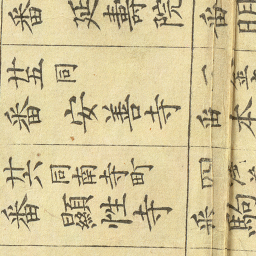 番 延壽院
廿五 同
番 安善寺
廿六 同南寺町
番 顯性寺
番 明
一
番 本
四
駒